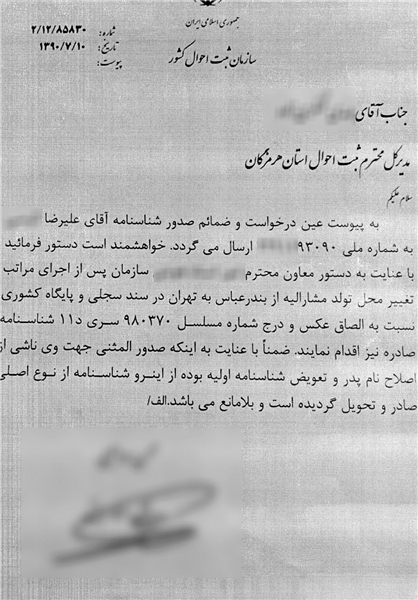 جمهوری اسلامی ایران
سازمان ثبت احوال کشور
شماره: ۲/۱۲/۸۵۸۳۰
تاریخ: ۱۳۹۰/۷/۱۰
پیوست:
جناب آقای
مدیرکل محترم ثبت احوال استان هرمزگان
سلام علیکم
به پیوست عین درخواست و ضمائم صدور شناسنامه آقای علیرضا
به شماره ملی ۹۳۰۹۰ ارسال می گردد. خواهشمند است دستور فرمائید
با عنایت به دستور معاون محترم سازمان پس از اجرای مراتب
تغییر محل تولد مشارالیه از بندرعباس به تهران در سند سجلی و پایگاه کشوری
نسبت به الصاق عکس و درج شماره مسلسل ۹۸۰۳۷۰ سری د۱۱ شناسنامه
صادره نیز اقدام نمایند. ضمناً با عنایت به اینکه صدور المثنی جهت وی ناشی از
اصلاح نام پدر و تعویض شناسنامه اولیه بوده از اینرو شناسنامه از نوع اصلی
صادر و تحویل گردیده است و بلامانع می باشد.الف/